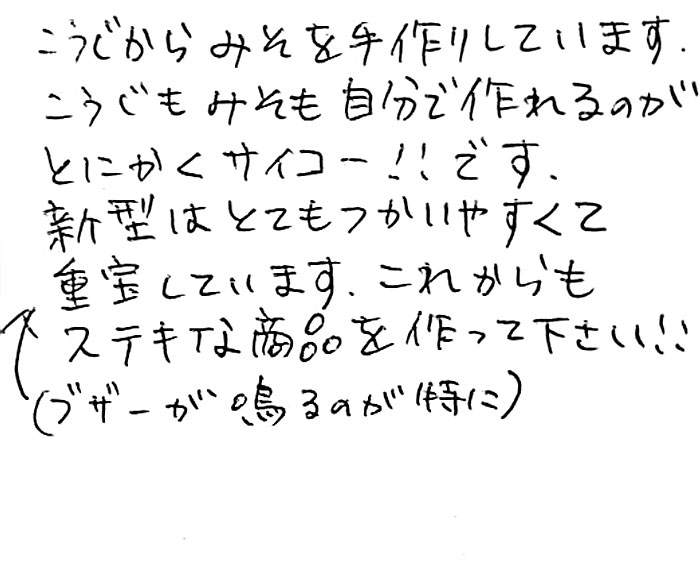 こうじからみそを手作りしています.
こうじもみそも自分で作れるのが
とにかくサイコー!!です.
新型はとてもつかいやすくて
重宝しています.これからも
ステキな商品を作って下さい!!
(ブザーが鳴るのが特に)